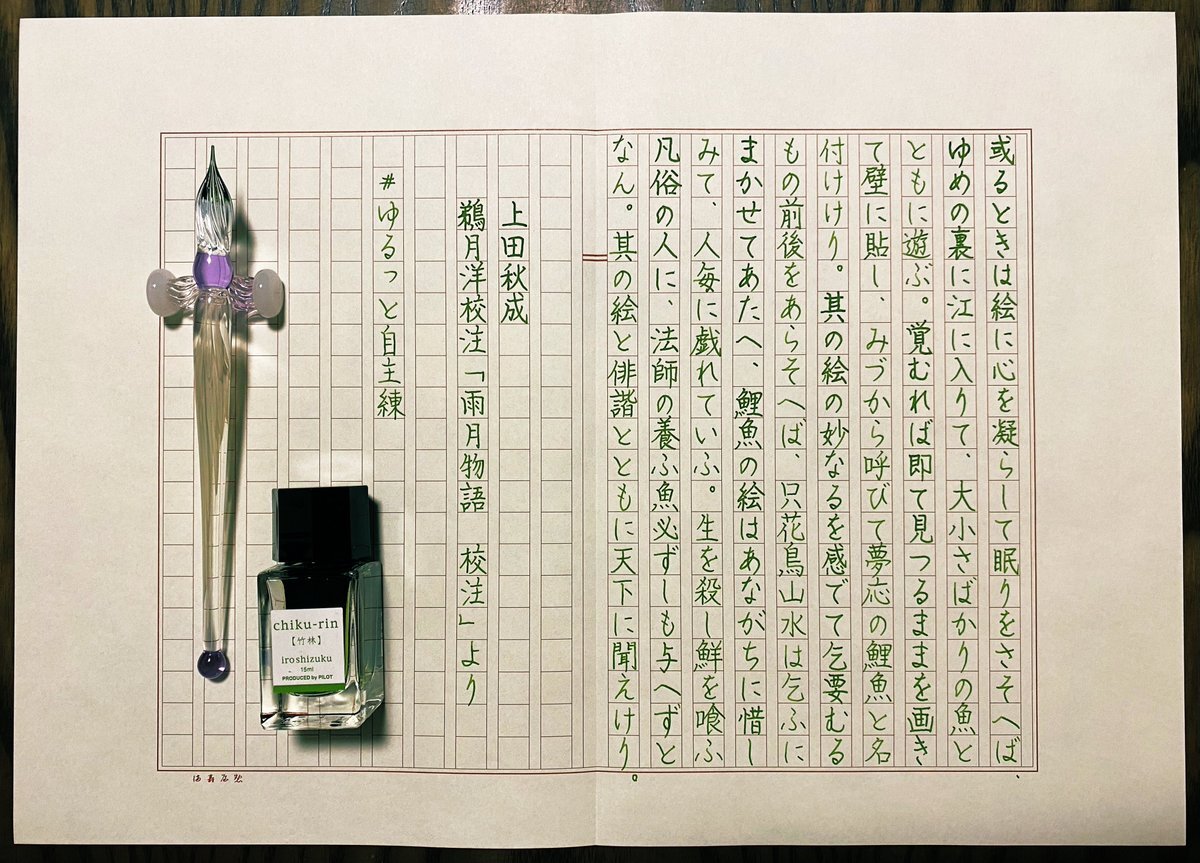 或るときは絵に心を凝らして眠りをさそへば、
ゆめの裏に江に入りて、大小さばかりの魚と
ともに遊ぶ。覚むれば即て見つるままを画き
て壁に貼し、みづから呼びて夢応の鯉魚と名
付けけり。其の絵の妙なるを感でて乞要むる
もの前後をあらそへば、只花鳥山水は乞ふに
まかせてあたへ、鯉魚の絵はあながちに惜し
みて、人毎に戯れていふ。生を殺し鮮を喰ふ
凡俗の人に、法師の養ふ魚必ずしも与へずと
なん。其の絵と俳諧とともに天下に聞えけり。
上田秋成
鵜月洋校注「雨月物語　校注」より
#ゆるっと自主練
chiku-rin
【竹林】
iroshizuku
15ml
PRODUCED by PILOT